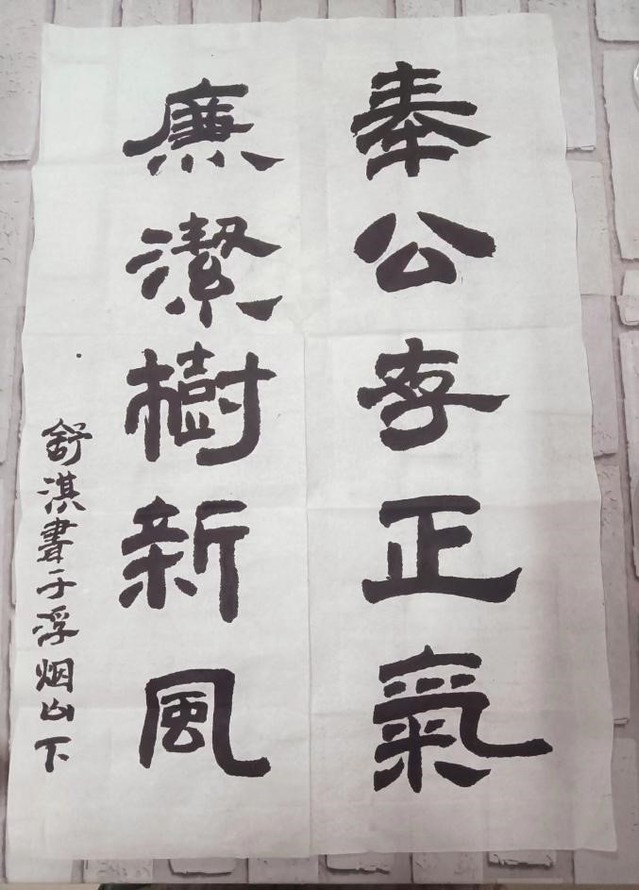 奉公存正氣
廉潔樹新風
舒淇書于浮烟山下